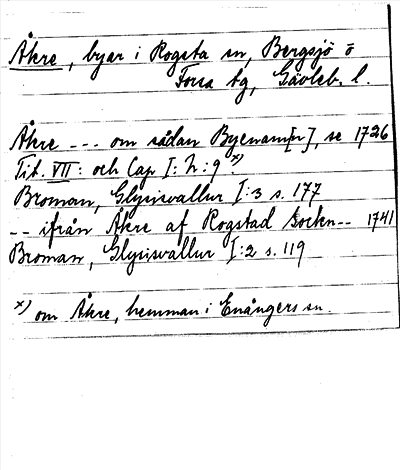 Åkre, byar i Rogsta sn, Bergsjö o
Forsa tg, Gävleb. l.
Åkre --- om sådan Byenamn[n], se 1726
Tit. VII: och Cap I: h: 9 x)
Broman, Glysisvallur I:3 s. 177
-- ifrån Åkre af Rogstad Sockn-- 1741
Broman, Glysisvallur I:2 s. 119
x) om Åkre, hemman i Enångers sn.